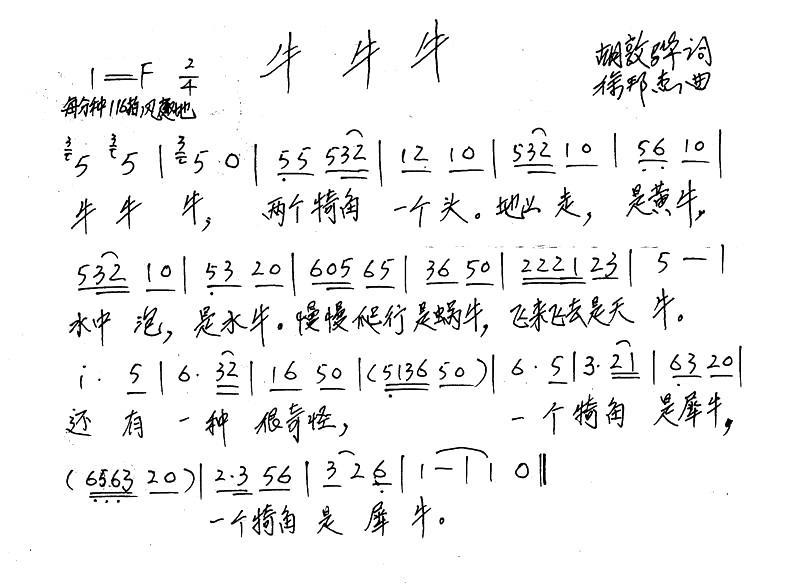 牛 牛 牛
1=F 2/4
胡敦骅词
徐邦杰曲
每分钟116拍 风趣地
5 5 | 5 0 | 55 532 | 12 10 | 532 10 | 56 10 |
牛 牛 牛, 两个犄角 一个头。地山 走, 是黄牛,
532 10 | 53 20 | 605 65 | 36 50 | 2221 23 | 5 — |
水中 泡, 是水牛。慢慢爬行是蜗牛, 飞来飞去是天 牛。
i· 5 | 6· 32 | 16 50 | (5136 50) | 6· 5 | 3· 21 | 63 20 |
还 有 一 种 很奇怪, 一 个犄角 是犀牛,
(6563 20) | 2·3 56 | 3 2 6 | 1 — | 1 0 ‖
一个犄角 是 犀 牛。